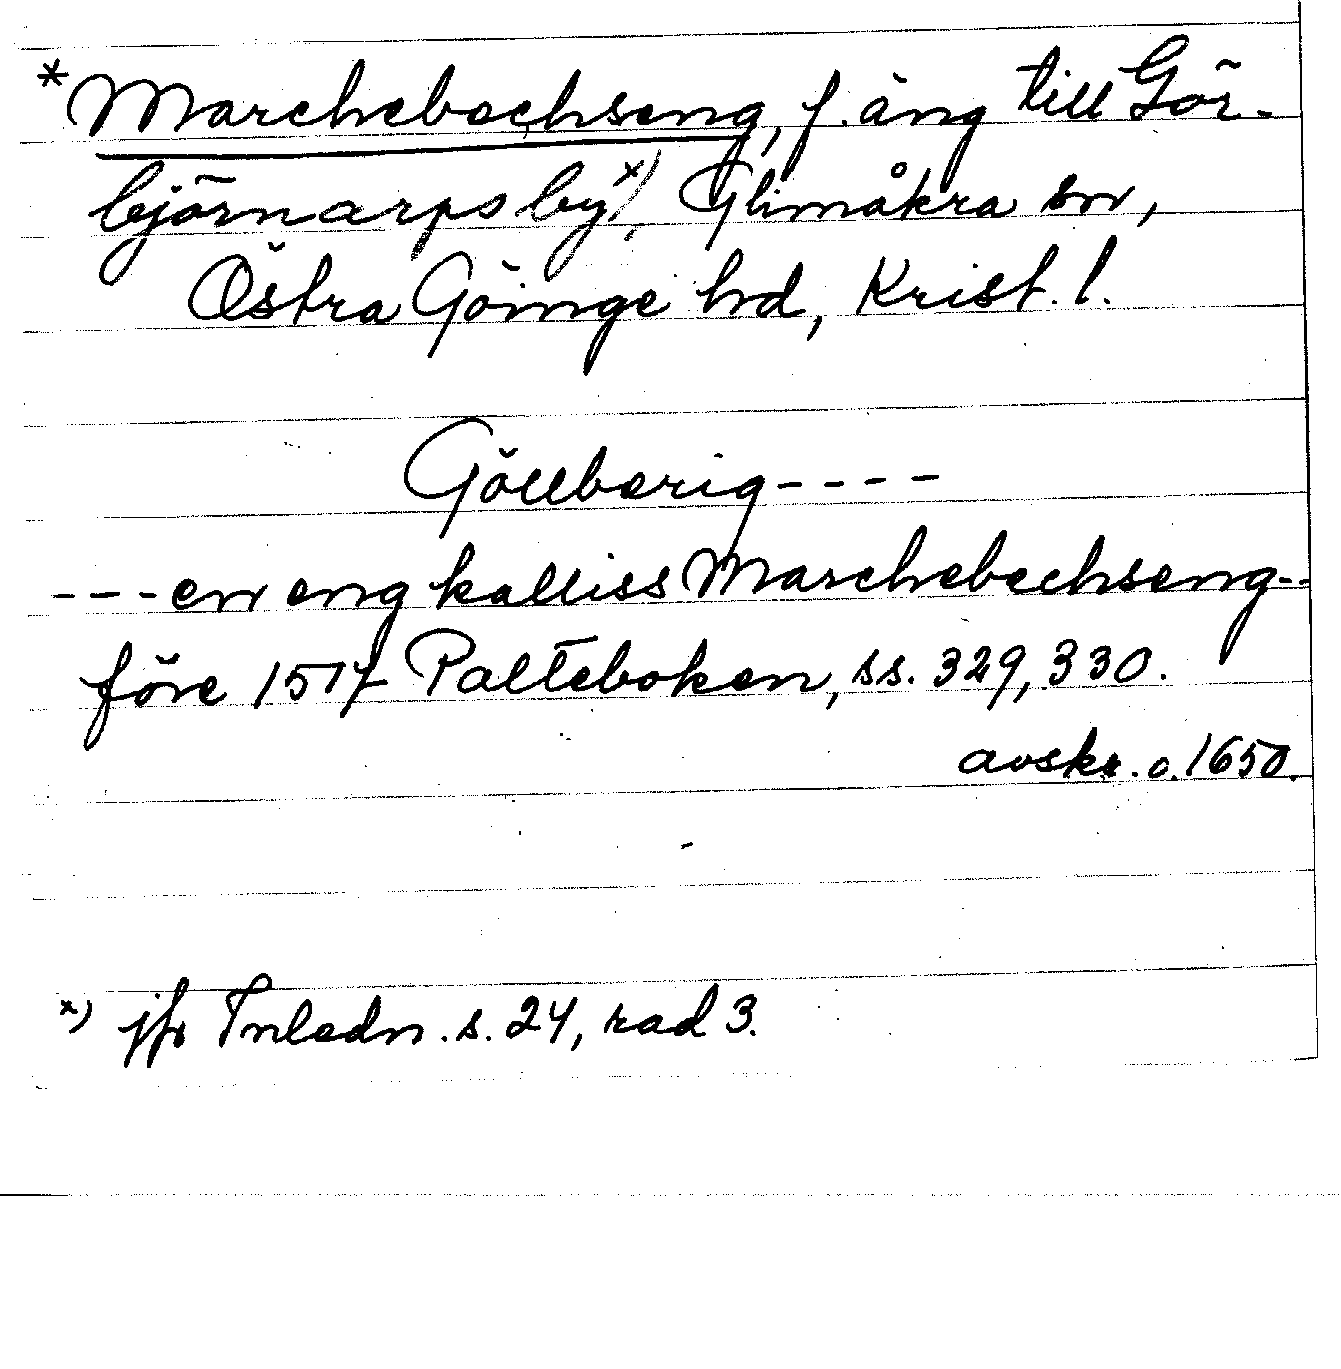 *Marchebechseng, f. äng till Gör-
björnarps by x), Glimåkra sn,
Östra Göinge hd, Krist. l.
Göllberig - - - -
- - - en eng kalliss Marchebechseng - -
före 1517 Palteboken, ss. 329, 330.
avskr. c. 1650.
x) jfr Inledn. s. 24, rad 3.